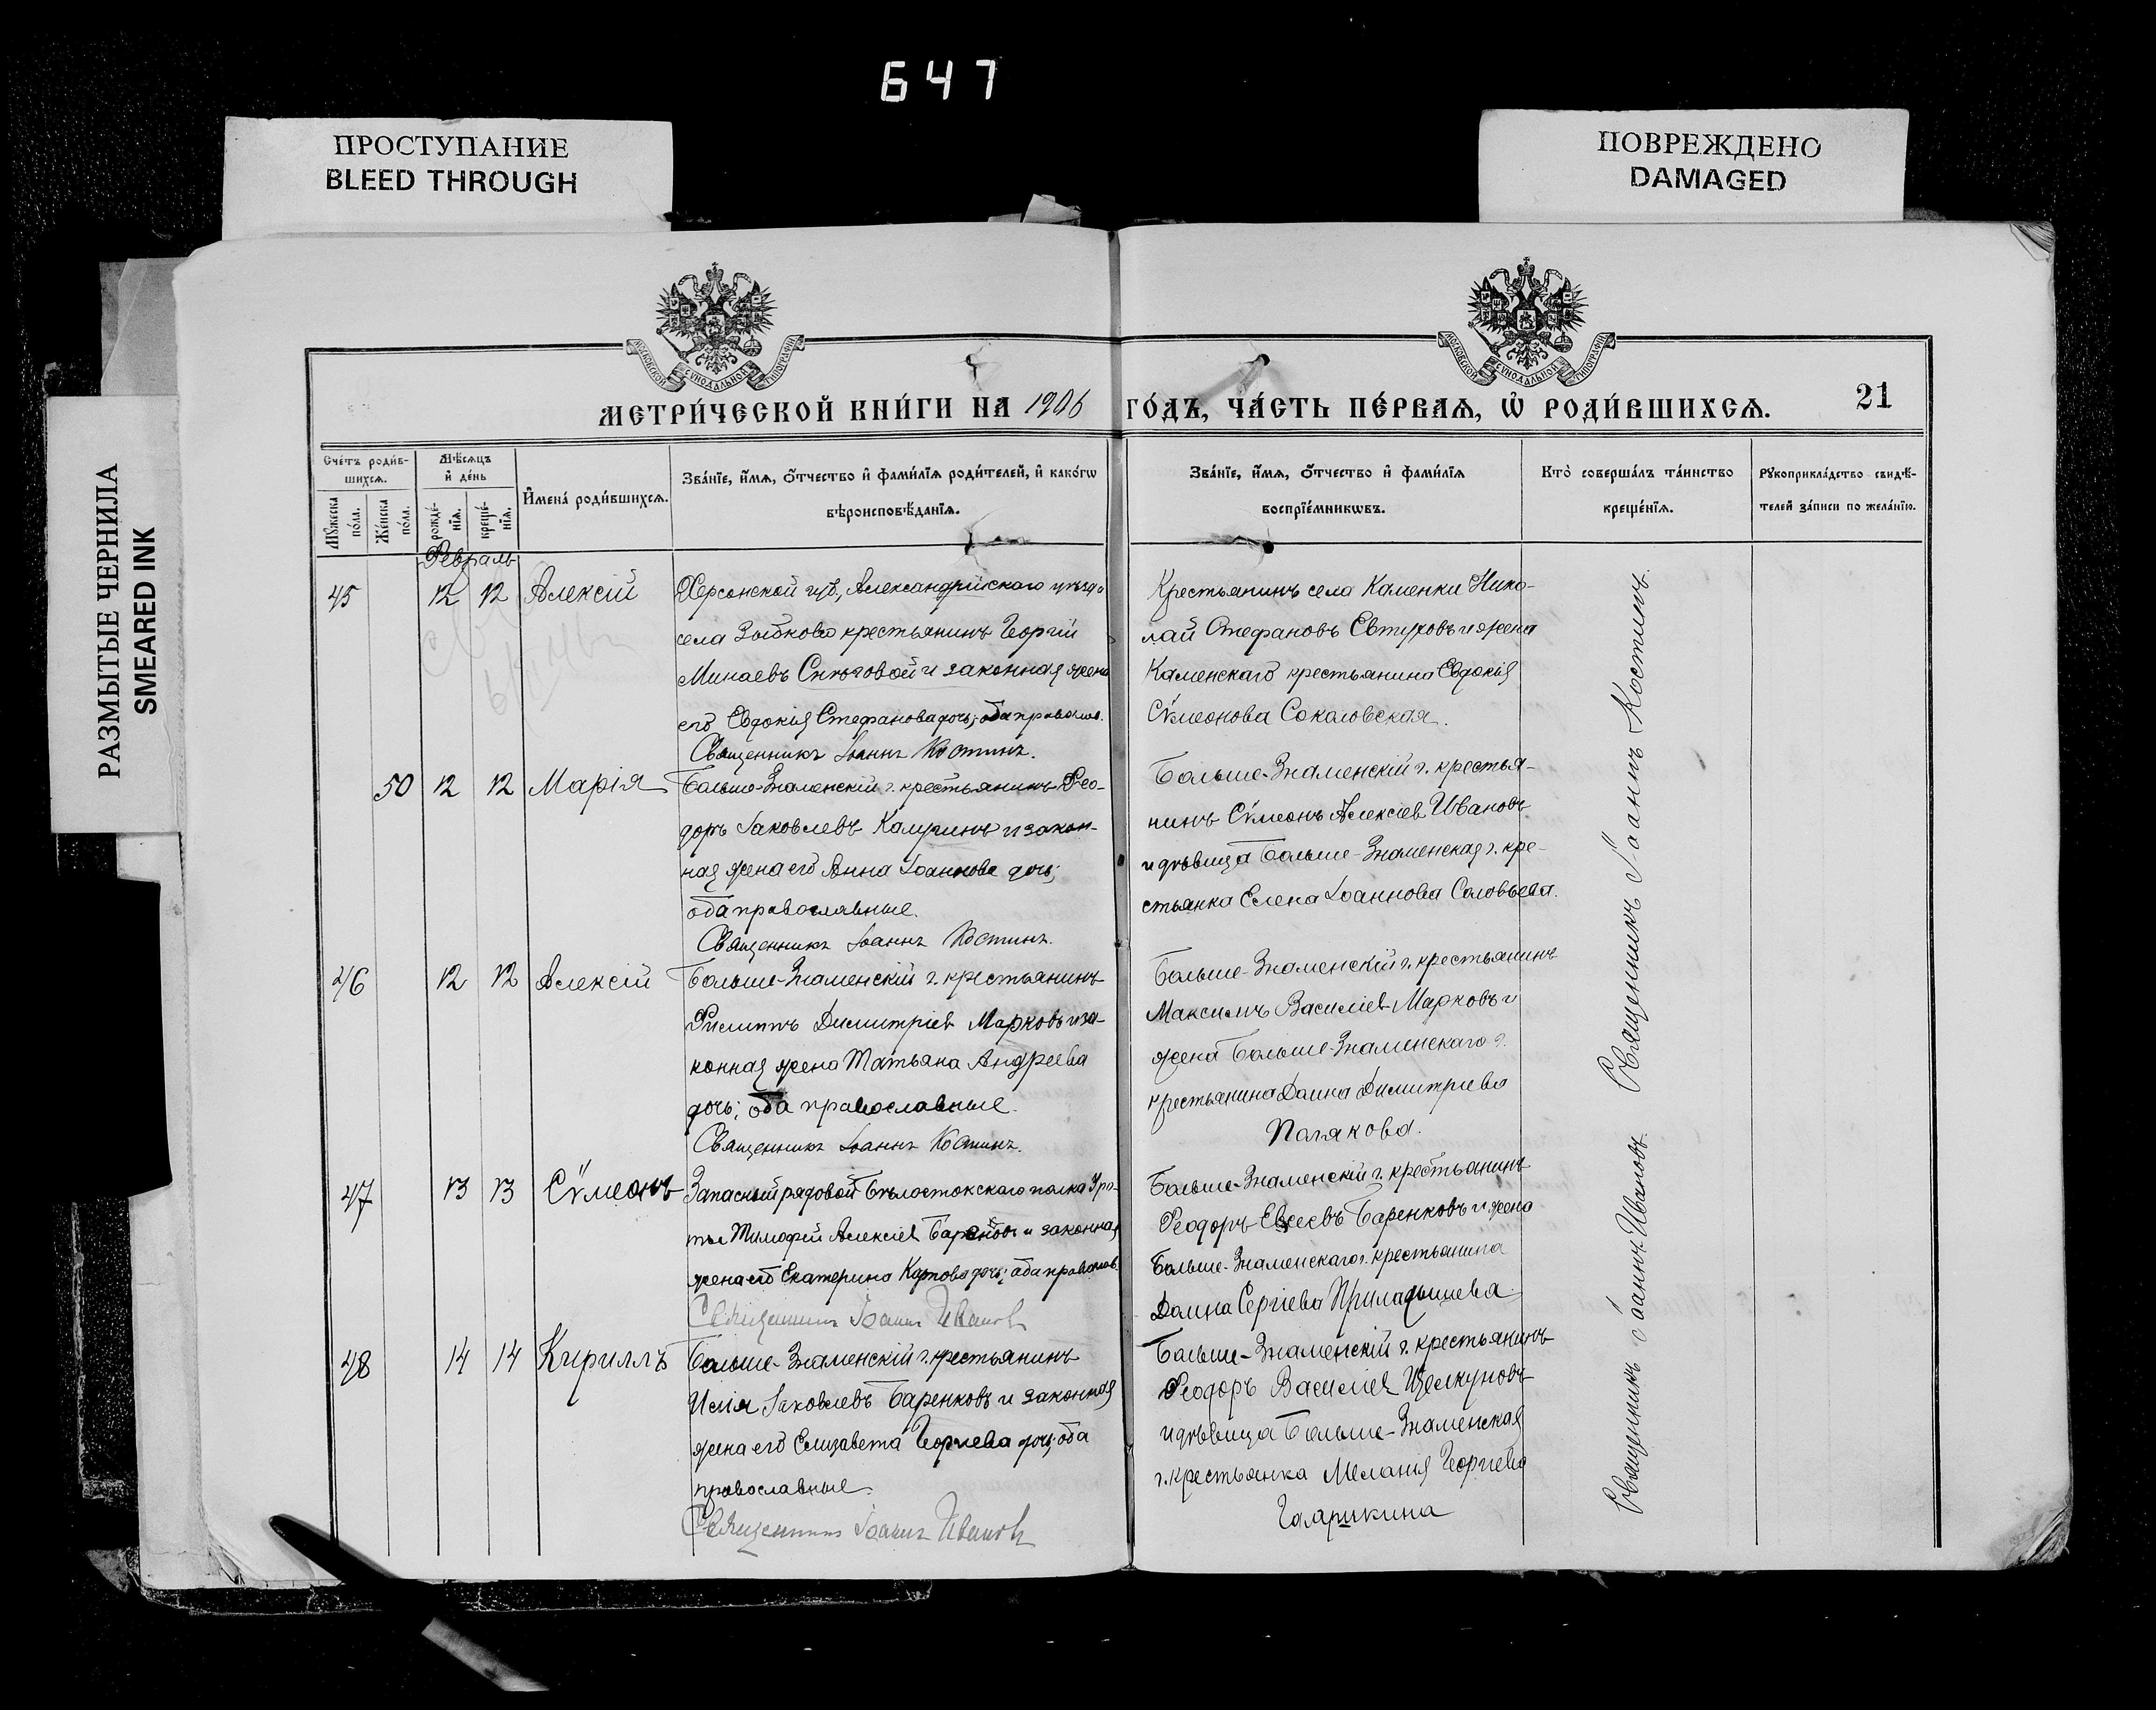 647
ПРОСТУПАНИЕ
BLEED THROUGH
ПОВРЕЖДЕНО
DAMAGED
РАЗМЫТЫЕ ЧЕРНИЛА
SMEARED INK
МОСКОВСКОЙ СУНОДАЛЬНОЙ ТИПОГРАФІИ
МОСКОВСКОЙ СУНОДАЛЬНОЙ ТИПОГРАФІИ
МЕТРИ́ЧЕСКОЙ КНИ́ГИ НА 1906 ГО́ДЪ, ЧА́СТЬ ПЕ́РВАЯ, Ѡ҆ РОДИ́ВШИХСЯ.
21
Сче́тъ роди́в-
шихся.
Му́жеска по́ла.
Же́нска по́ла.
Мѣ́сяцъ
и҆ де́нь
рожде́-
нїя.
креще́-
нїя.
И҆мена́ роди́вшихся.
Зва́нїе, и҆́мя, ѻ҆́тчество и҆ фами́лїя роди́телей, и҆ како́гѡ
вѣроисповѣ́данїя.
Зва́нїе, и҆́мя, ѻ҆́тчество и҆ фами́лїя
воспрїе́мникѡвъ.
Кто̀ соверша́лъ та́инство
креще́нїя.
Рꙋкоприкла́дство свидѣ́-
телей за́писи по жела́нїю.
Февраль
45 12 12 Алексій
Херсонской губ., Александрійскаго уѣзда
села Зыбкова крестьянинъ Георгій
Минаевъ и законная жена
его Евдокія Стефанова дочь; оба правосл.
Священникъ Іоаннъ Костинъ.
Крестьянинъ села Каменки Нико-
лай Стефановъ Евтуховъ и жена
Каменскаго крестьянина Евдокія
Сѵмеонова Соколовская.
50 12 12 Марія
Больше-Знаменскій г. крестьянинъ Ѳео-
доръ Іаковлевъ Калугинъ и закон-
ная жена его Анна Іоаннова дочь;
оба православные.
Священникъ Іоаннъ Костинъ.
Больше-Знаменскій г. крестья-
нинъ Сѵмеонъ Алексіев Ивановъ
и дѣвица Больше-Знаменская г. кре-
стьянка Елена Іоаннова Соловьева.
46 12 12 Алексій
Больше-Знаменскій г. крестьянинъ
Филиппъ Димитріев Марковъ и за-
конная жена Татьяна Андреева
дочь; оба православные.
Священникъ Іоаннъ Костинъ.
Больше-Знаменскій г. крестьянинъ
Максимъ Василіев Марковъ и
жена Больше-Знаменскаго г.
крестьянина Домна Димитріева
Полякова.
47 13 13 Сѵмеонъ
Запасный рядовой Бѣлостокскаго полка 3 ро-
ты Тимофей Алексіев и законная
жена его Екатерина Карпова дочь; оба правосл.
Священникъ Іоаннъ Ивановъ
Больше-Знаменскій г. крестьянинъ
Ѳеодоръ Евсеевъ Баренковъ и жена
Больше-Знаменскаго г. крестьянина
Домна Сергіева
48 14 14 Кириллъ
Больше-Знаменскій г. крестьянинъ
Илія Іаковлевъ Баренковъ и законная
жена его Елизавета Георгіева дочь; оба
православные.
Священникъ Іоаннъ Ивановъ
Больше-Знаменскій г. крестьянинъ
Ѳеодоръ Василіев Щелкуновъ
и дѣвица Больше-Знаменская
г. крестьянка Меланія Георгіева
Священникъ Іоаннъ Костинъ.
Священникъ Іоаннъ Ивановъ.